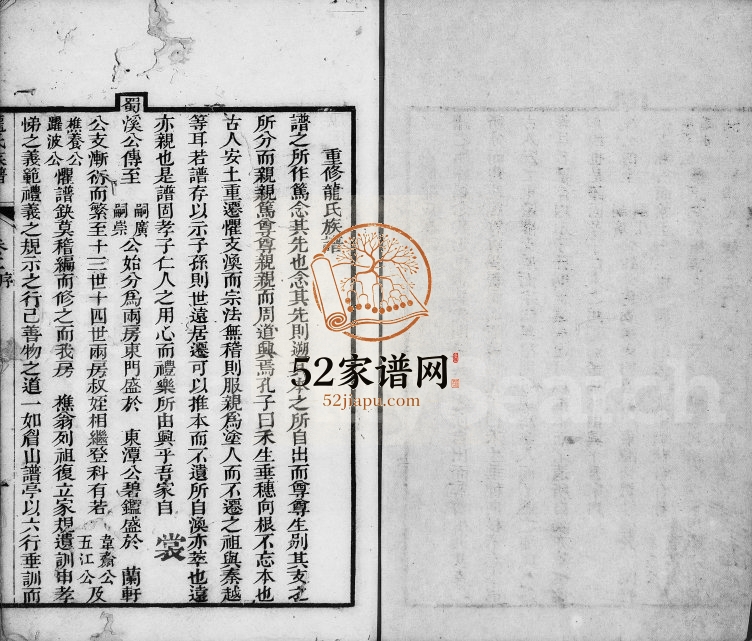 重修龍氏族譜
譜之所作篤念其先也念其先則溯 本之所自出而尊尊生别其支之
所分而親親篤尊尊親親而周道興焉孔子曰禾生垂穗向根不忘本也
古人安土重遷懼支渙而宗法無稽則服親為塗人而不遷之祖與秦越
等耳若譜存以示子孫則世遠居遷可以推本而不遺所自渙亦萃也遠
亦親也是譜固孝子仁人之用心而禮樂所由興乎吾家自 裳
蜀溪公傳至 嗣廣 嗣崇 公始分為兩房東門盛於 東潭公碧鑑盛於 蘭軒
公支漸衍而繁至十三世十四世兩房叔姪相繼登科有若 韋齋公 五江公 及
樵養公 躍波公 懼譜缺莫稽編而修之而我房 樵翁列祖復立家規遺訓申孝
悌之義範禮義之規示之行己善物之道一如眉山譜亭以六行垂訓而
龍氏族譜 序
52家谱网
52jiapu.com
Search